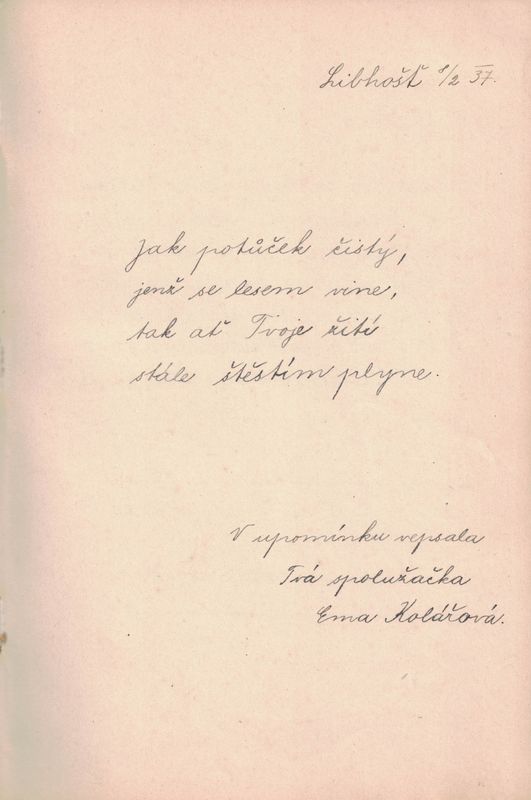 Libhošť 8/2 37.
Jak potůček čistý,
jenž se lesem vine,
tak ať Tvoje žití
stále štěstím plyne.
V upomínku vepsala
Tvá spolužačka
Ema Kolářová.